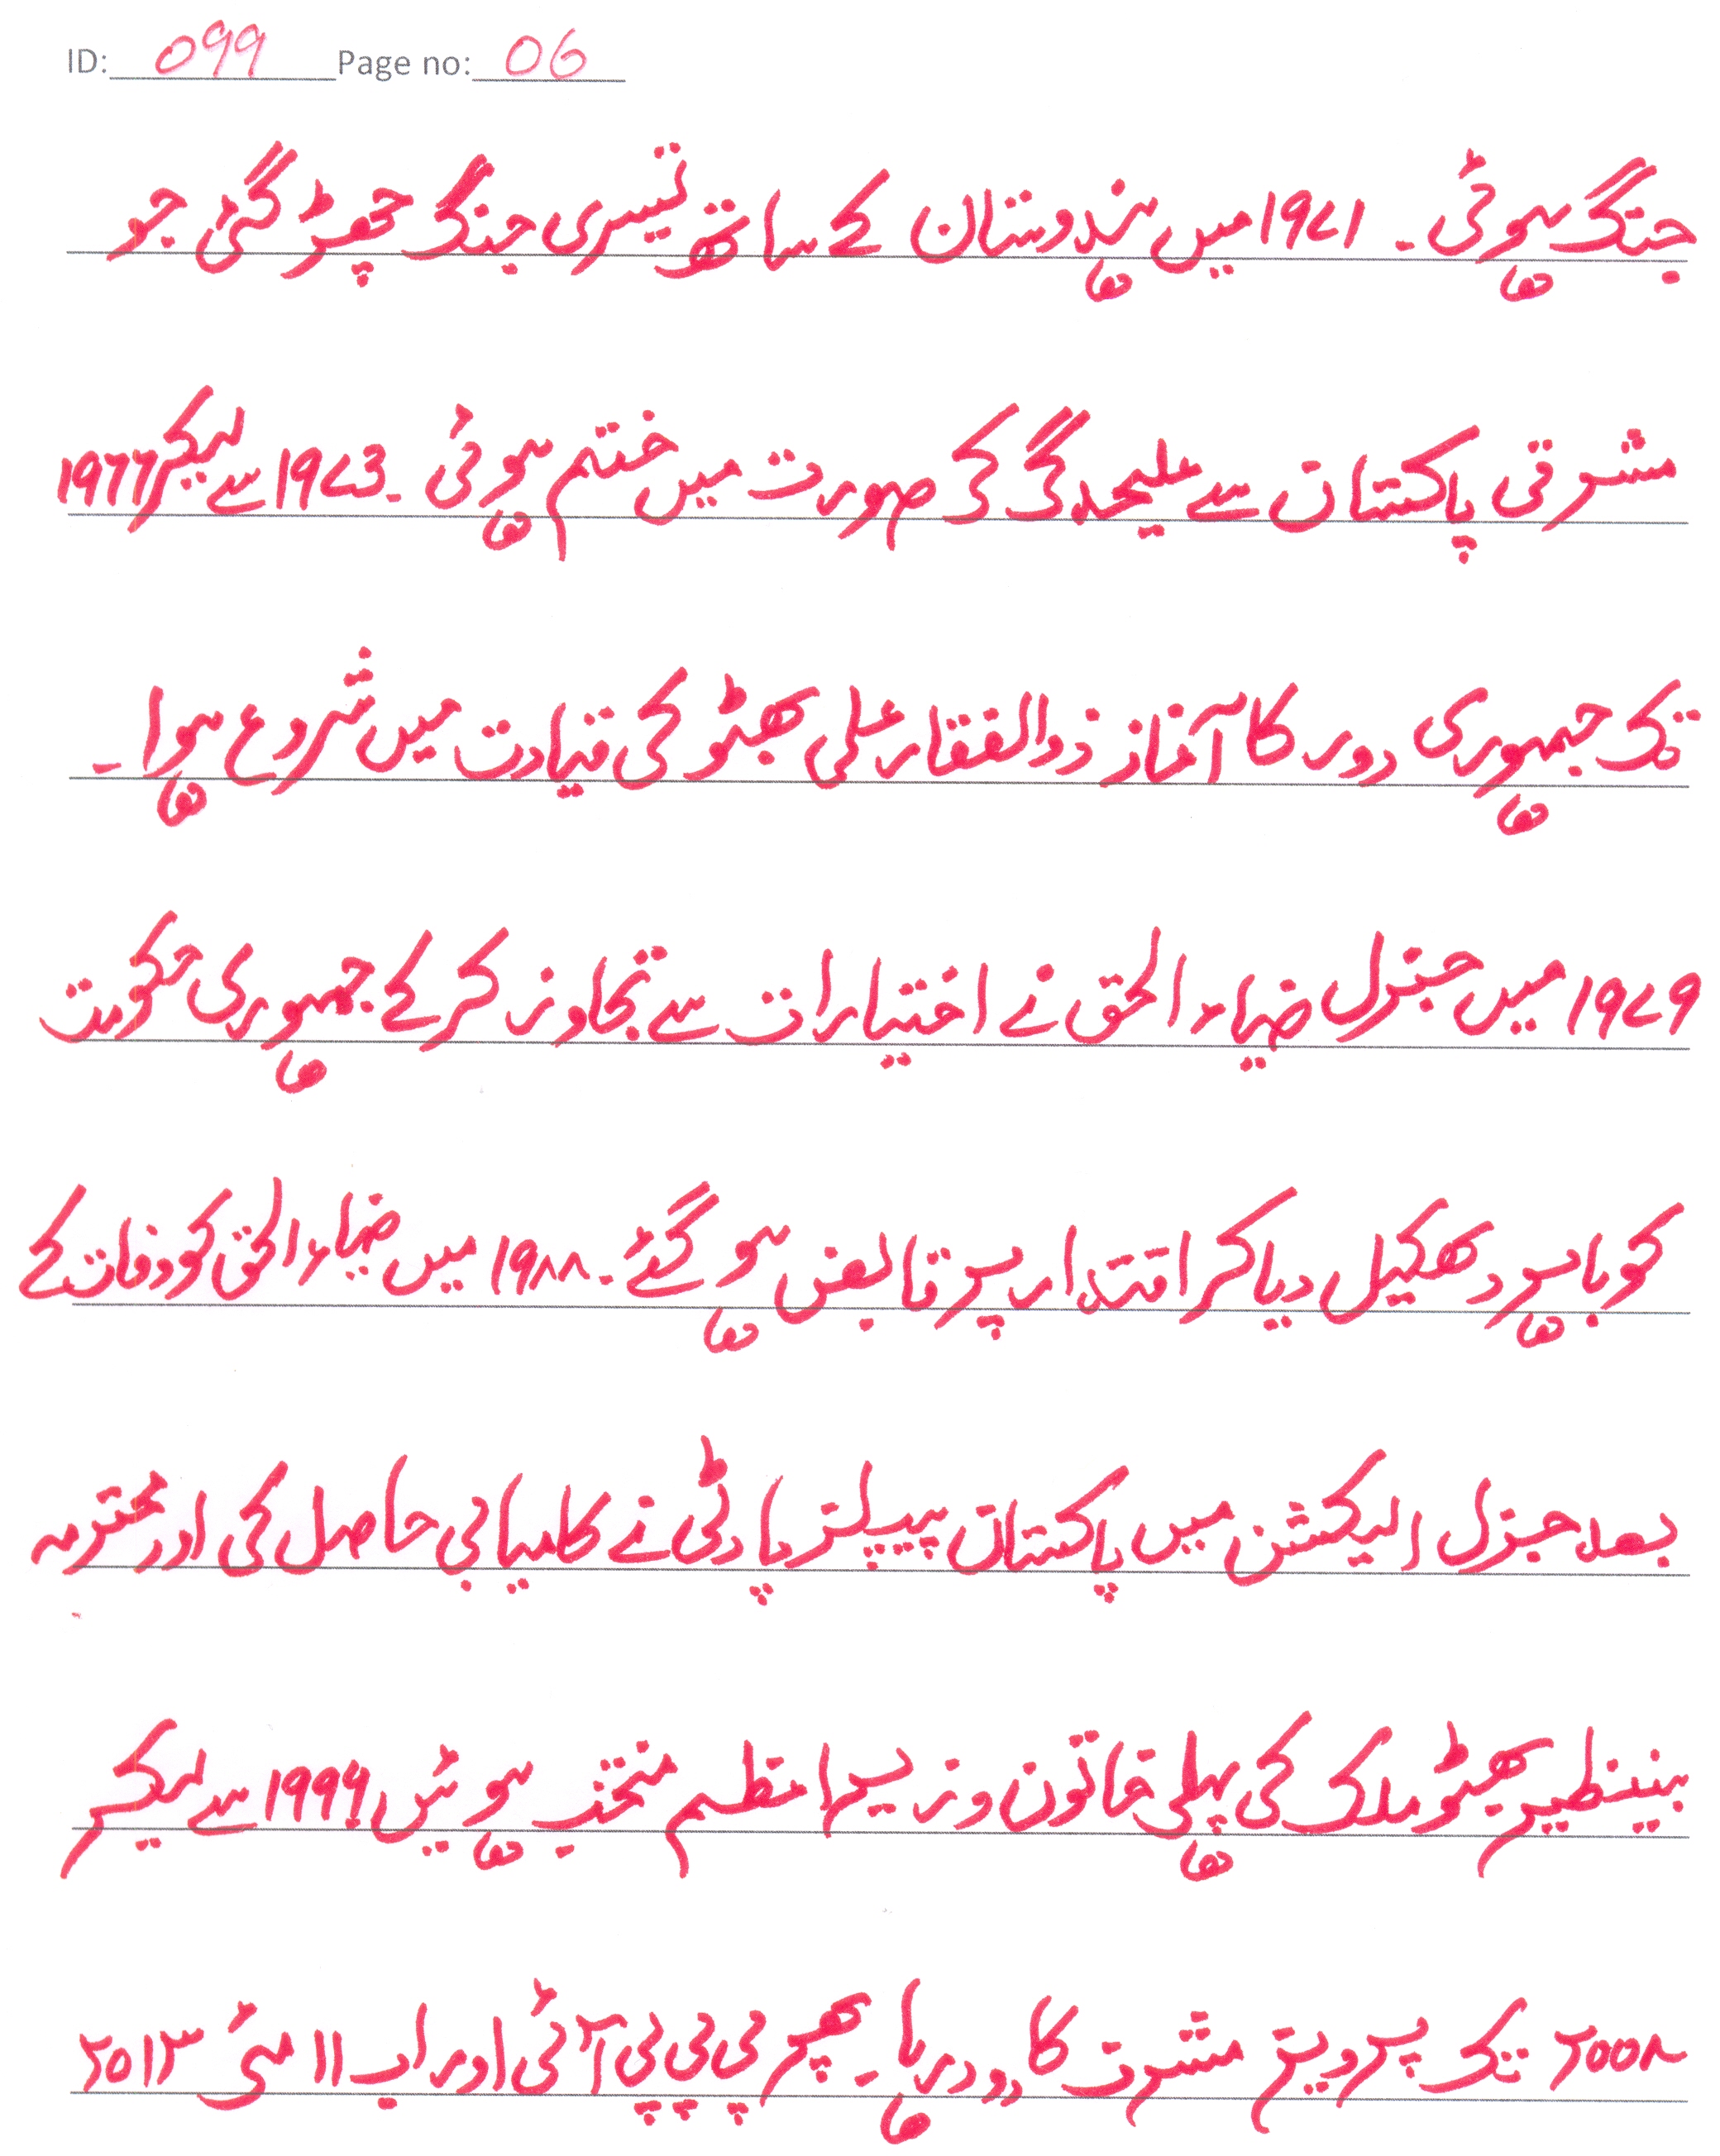 ID: 099 Page no: 06
جنگ ہوئی۔ ۱۹۷۱ میں ہندوستان کے ساتھ تیسری جنگ چھڑ گئی جو
مشرقی پاکستان سے علیحدگی کی صورت میں ختم ہوئی۔ ۱۹۷3 سے لیکر ۱۹۲۲
تک جمہوری دور کا آغاز ذوالفقار علی بھٹو کی قیادت میں شروع ہوا۔
۱۹۷۹ میں جنرل ضیاء الحق نے اختیارات سے تجاوز کر کے جمہوری حکومت
کو باہر دھکیل دیا کر اقتدار پر قابض ہو گئے۔ ۱۹۸۸ میں ضیاء الحق کو وفات کے
بعد جنرل الیکشن میں پاکستان پیپلز پارٹی نے کامیابی حاصل کی اور محترمہ
بینظیر بھٹو ملک کی پہلی خاتون وزیر اعظم منتخب ہوئیں ۱۹۹۹ سے لیکر
۲۰۰۸ تک پرویز مشرف کا دور رہا۔ پھر پی پی پی آئی اور اب ۱۱ مئی ۲۰۱۳